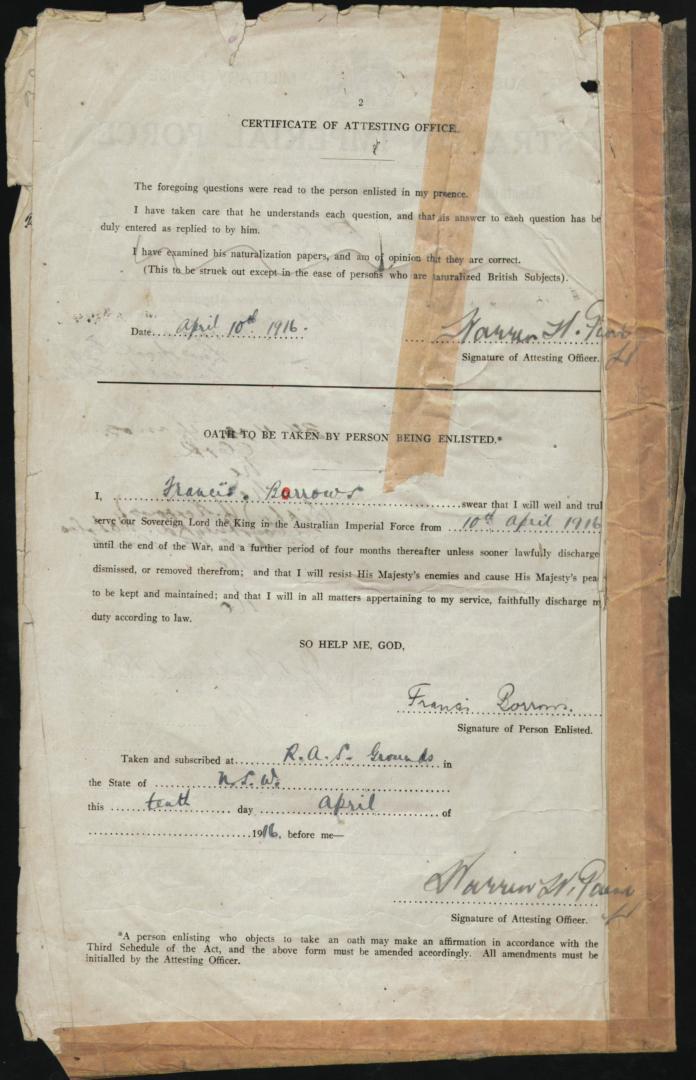 2
CERTIFICATE OF ATTESTING OFFICE
The foregoing questions were read to the person enlisted in my presence.
I have taken care that he understands each question, and that his answer to each question has be
duly entered as replied to by him.
I have examined his naturalization papers, and am of opinion that they are correct.
(This to be struck out except in the case of persons who are naturalized British Subjects).
Date April 10th 1916.
Warren H.
Signature of Attesting Officer.
OATH TO BE TAKEN BY PERSON BEING ENLISTED.*
I, Francis. Borrows swear that I will well and trul
serve our Sovereign Lord the King in the Australian Imperial Force from 10th April 1916
until the end of the War, and a further period of four months thereafter unless sooner lawfully discharge
dismissed, or removed therefrom; and that I will resist His Majesty's enemies and cause His Majesty's pea
to be kept and maintained; and that I will in all matters appertaining to my service, faithfully discharge m
duty according to law.
SO HELP ME, GOD,
Francis Borrows.
Signature of Person Enlisted.
Taken and subscribed at R.A.S. Grounds in
the State of N.S.W.
this tenth day April of
1916, before me—
Warren H.
Signature of Attesting Officer.
*A person enlisting who objects to take an oath may make an affirmation in accordance with the
Third Schedule of the Act, and the above form must be amended accordingly. All amendments must be
initialled by the Attesting Officer.